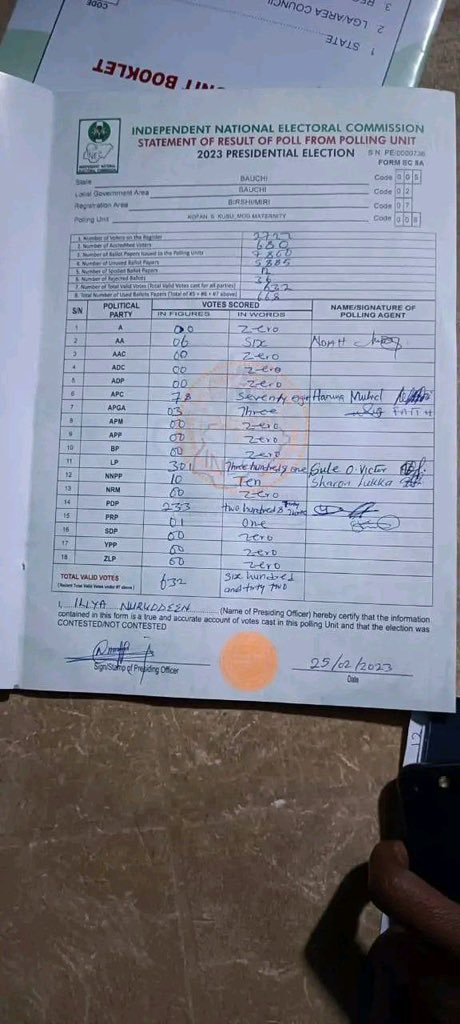 CODE
3 REG
2 LGA/AREA COUNCIL
1 STATE
NIT BOOKLET
INDEPENDENT NATIONAL ELECTORAL COMMISSION
STATEMENT OF RESULT OF POLL FROM POLLING UNIT
2023 PRESIDENTIAL ELECTION S/N PE/0000736
FORM EC 8A
INDEPENDENT NATIONAL ELECTORAL COMMISSION
State BAUCHI Code 005
Local Government Area BAUCHI Code 02
Registration Area BIRSHI/MIRI Code 07
Polling Unit MATERNITY Code
1. Number of Voters on the Register
2. Number of Accredited Voters 680
3. Number of Ballot Papers Issued to the Polling Unit
4. Number of Unused Ballot Papers
5. Number of Spoiled Ballot Papers
6. Number of Rejected Ballots 36
7. Number of Total Valid Votes (Total Valid Votes cast for all parties) 632
8. Total Number of Used Ballots Papers (Total of #5 + #6 + #7 above) 668
S/N POLITICAL PARTY VOTES SCORED NAME/SIGNATURE OF POLLING AGENT
IN FIGURES IN WORDS
1 A 00 Zero
2 AA 06 Six
3 AAC 00 Zero
4 ADC 00 Zero
5 ADP 00 Zero
6 APC 78 Seventy Haruna Muhd
7 APGA 03 Three FAITH
8 APM 00 Zero
9 APP 00 Zero
10 BP 00 Zero
11 LP 301 Three hundred & one Gule O. Victor
12 NNPP 10 Ten Sharon Lukka
13 NRM 00 Zero
14 PDP 233 two hundred &
15 PRP 01 One
16 SDP 00 Zero
17 YPP 00 Zero
18 ZLP 00 Zero
TOTAL VALID VOTES 632 Six hundred and thirty two
(Record Total Valid Votes under #7 above)
I, ILIYA NURUDDEEN (Name of Presiding Officer) hereby certify that the information
contained in this form is a true and accurate account of votes cast in this polling Unit and that the election was
CONTESTED/NOT CONTESTED
Sign/Stamp of Presiding Officer
25/02/2023
Date
12